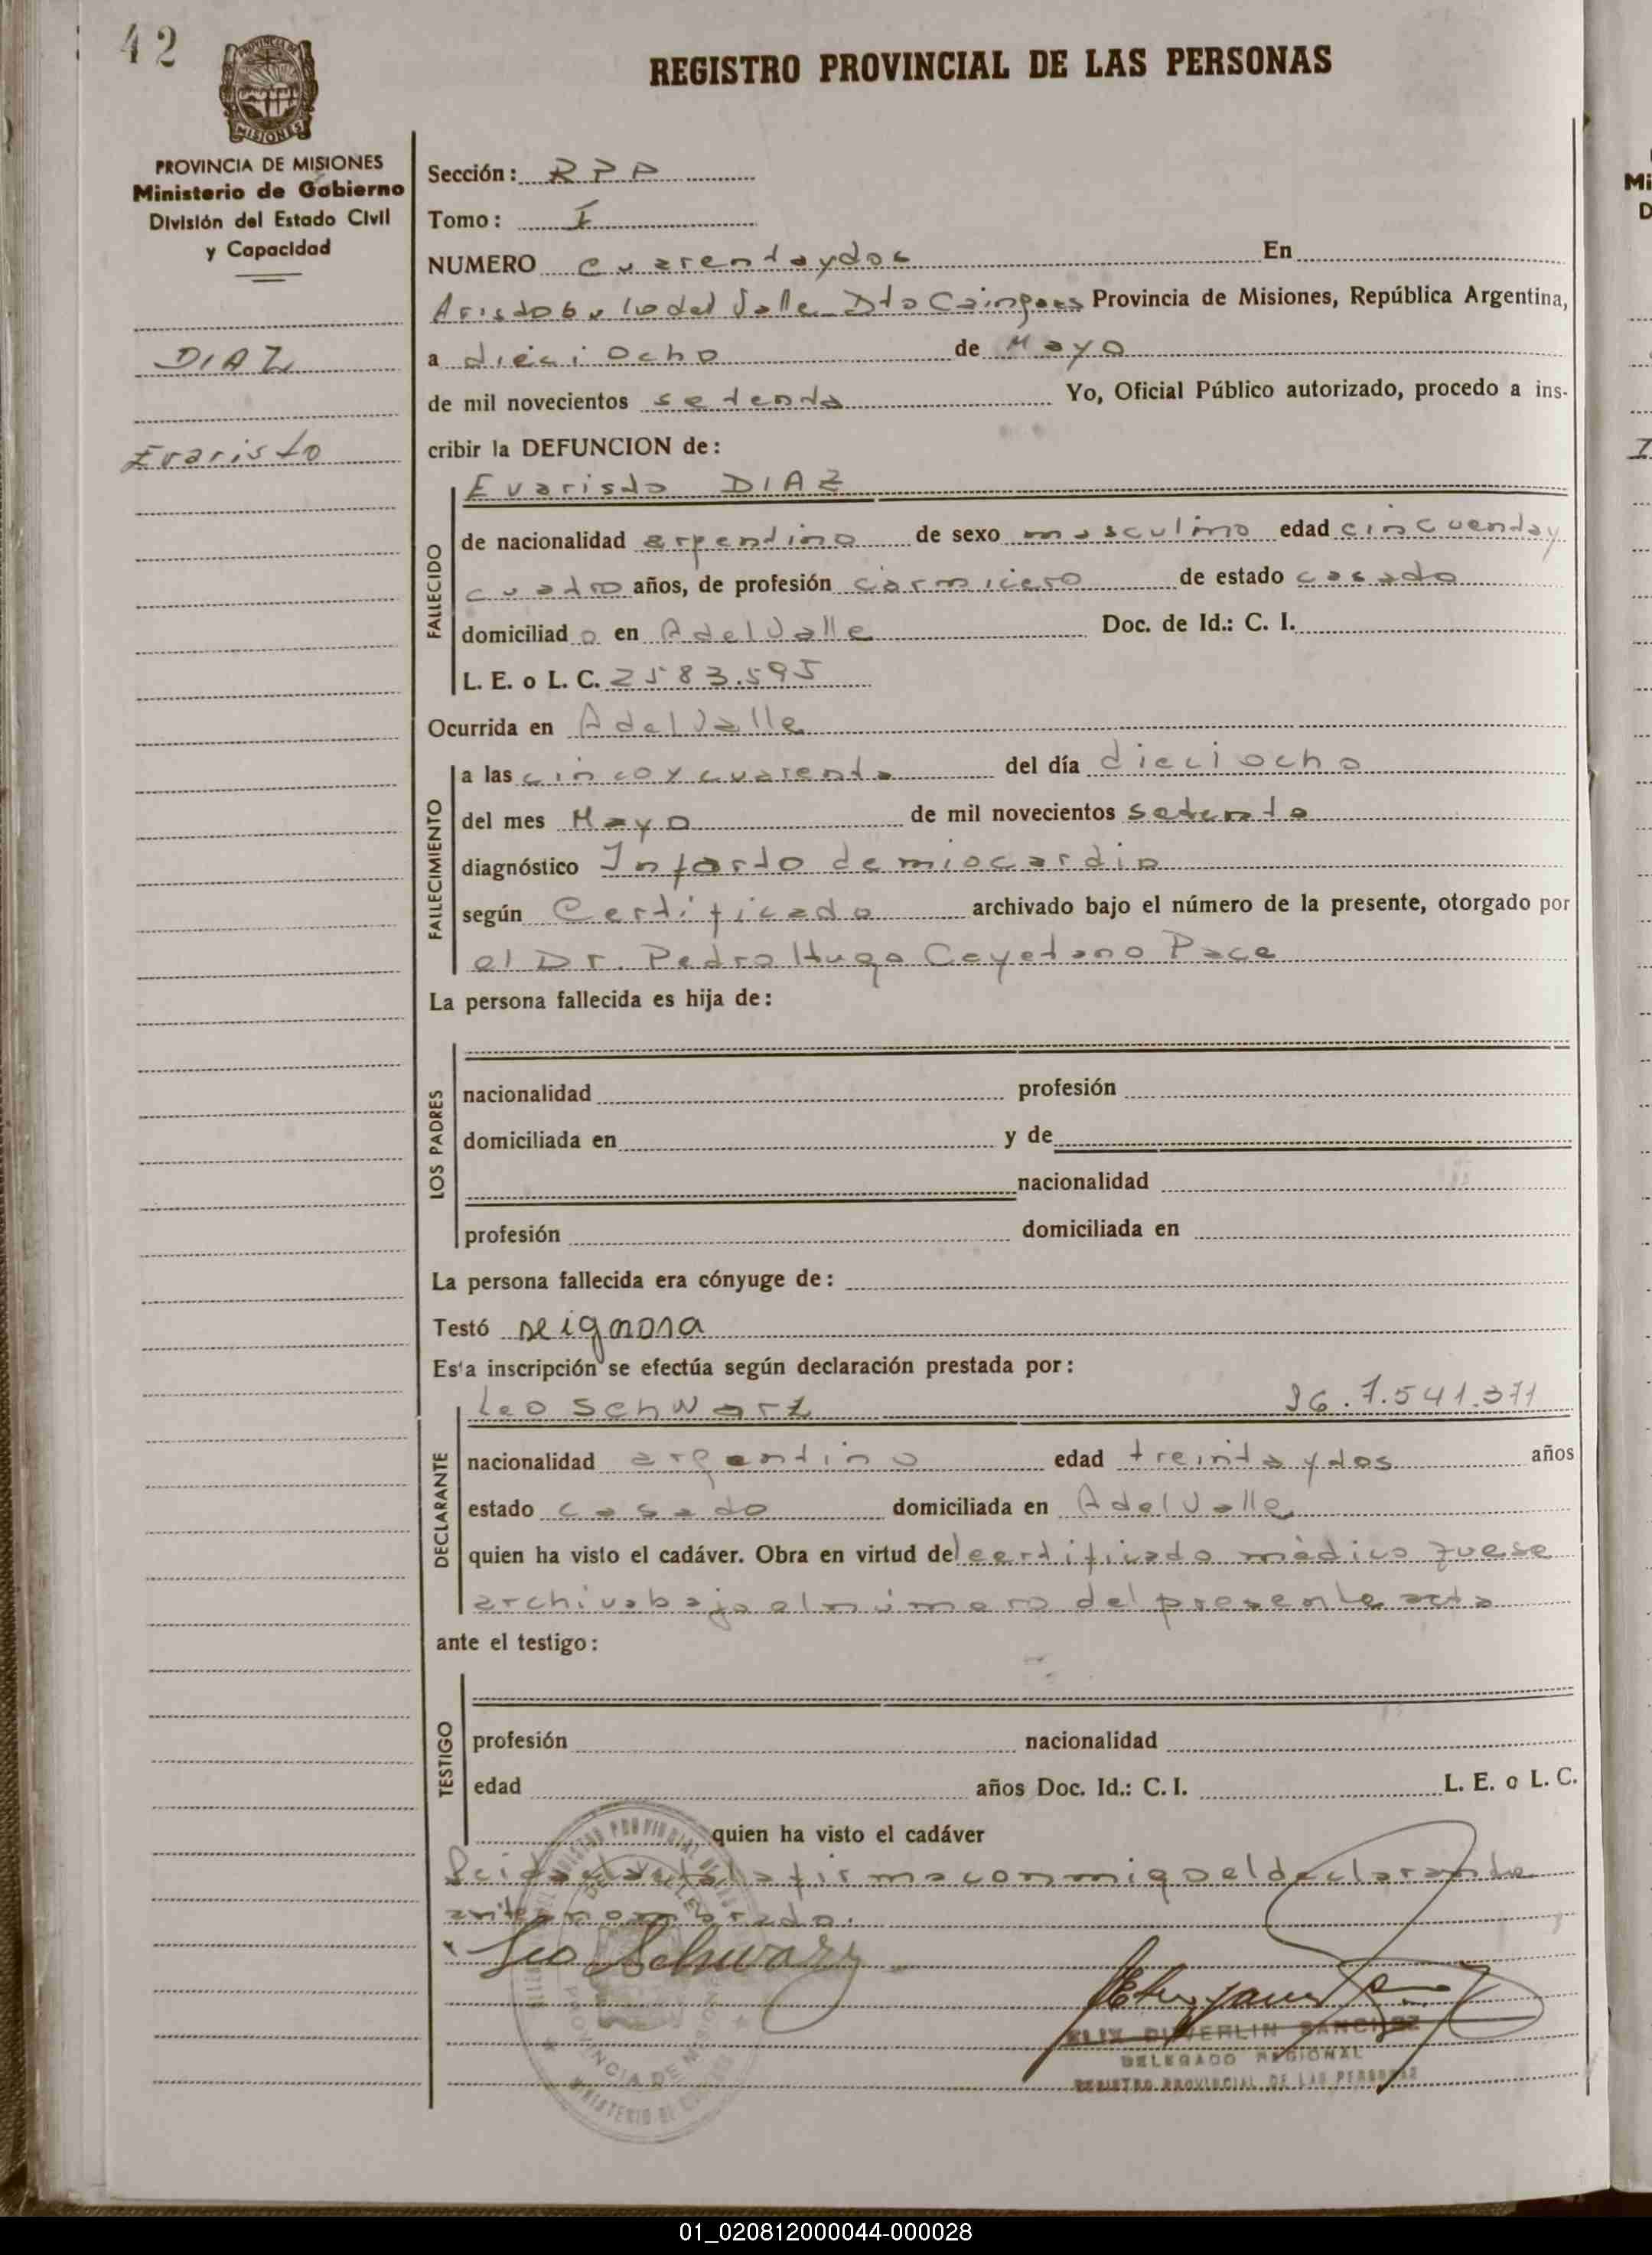 42
REGISTRO PROVINCIAL DE LAS PERSONAS
PROVINCIA DE MISIONES
Ministerio de Gobierno
División del Estado Civil
y Capacidad
DIAZ
Evaristo
Sección: RPP
Tomo: I
NUMERO cuarentaydos En
Aristobulo del Valle Dto Cainguas Provincia de Misiones, República Argentina,
a dieciocho de Mayo
de mil novecientos setenta Yo, Oficial Público autorizado, procedo a ins-
cribir la DEFUNCION de:
Evaristo DIAZ
FALLECIDO
de nacionalidad argentino de sexo masculino edad cincuentay
cuatro años, de profesión carnicero de estado casado
domiciliado en A del Valle Doc. de Id.: C. I.
L. E. o L. C. 2583.595
Ocurrida en A del Valle
FALLECIMIENTO
a las cincoycuarenta del día dieciocho
del mes Mayo de mil novecientos setenta
diagnóstico Infarto de miocardio
según Certificado archivado bajo el número de la presente, otorgado por
el Dr. Pedro Hugo Cayetano Pace
La persona fallecida es hija de:
LOS PADRES
nacionalidad profesión
domiciliada en y de
nacionalidad
profesión domiciliada en
La persona fallecida era cónyuge de:
Testó se ignora
Esta inscripción se efectúa según declaración prestada por:
Leo Schwarz 7.541.371
DECLARANTE
nacionalidad argentino edad treinta y dos años
estado casado domiciliada en A del Valle
quien ha visto el cadáver. Obra en virtud del certificado médico quese
archiva bajo el número del presente acta
ante el testigo:
TESTIGO
profesión nacionalidad
edad años Doc. Id.: C. I. L. E. o L. C.
quien ha visto el cadáver
Leida el acta la firma conmigo el declarante
antes nombrado.
Leo Schwarz
SANCHEZ
DELEGADO REGIONAL
REGISTRO PROVINCIAL DE LAS PERSONAS
01_020812000044-000028